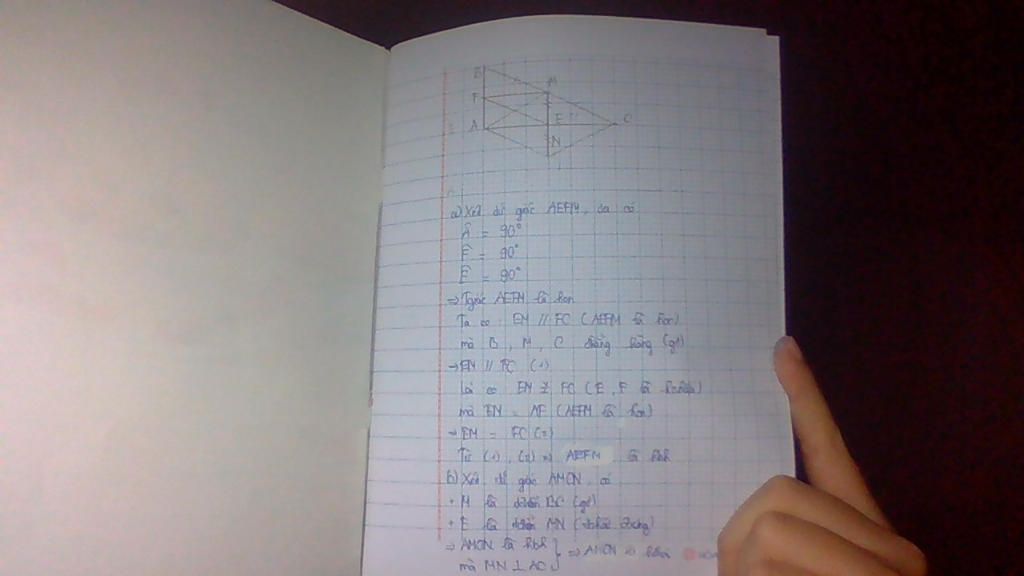 B
M
F
A
E
C
N
a) Xét tứ giác AEFM, ta có
Â = 90°
F̂ = 90°
Ê = 90°
⇒ Tgiác AEFM là hcn
Ta có: EM // FC (AEFM là hcn)
mà B, M, C thẳng hàng (gt)
⇒ EM // FC (1)
Lại có EM FC (E, F là)
mà EM = AF (AEFM là hcn)
⇒ EM = FC (2)
Từ (1), (2) ⇒ AEFM là hbh
b) Xét tứ giác AMCN, có
+ M là BC (gt)
+ E là MN
⇒ AMCN là hbh } ⇒ AMCN là
mà MN ⊥ AC